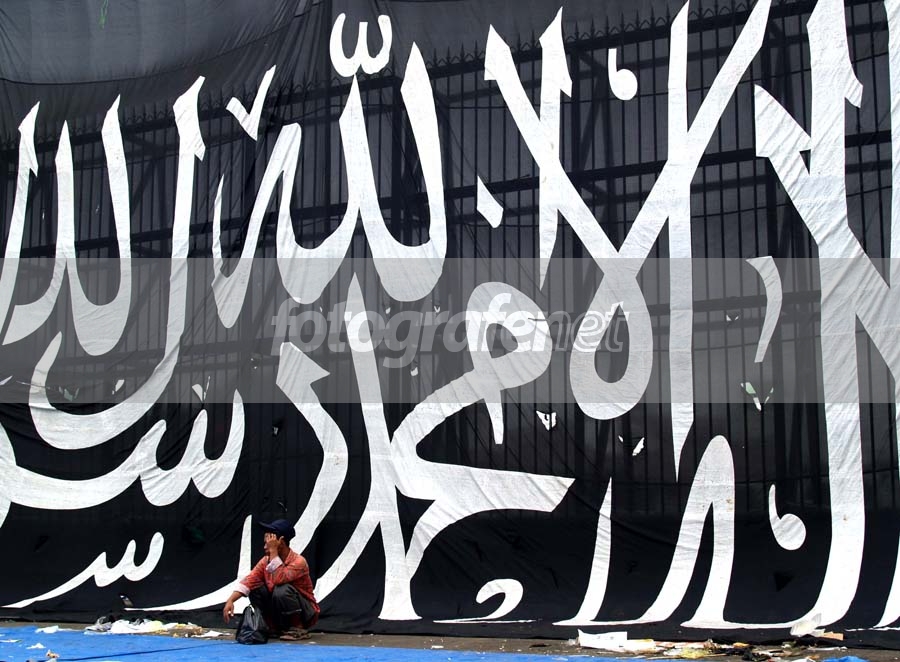 لا إله إلا الله محمد رسول الله
fotografenet